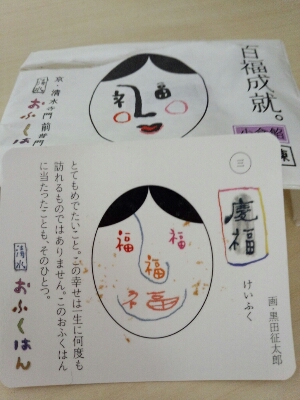 百福成就。
礼
福
京・清水寺門前
おふくはん
三
慶福
けいふく
画・黒田征太郎
福
福
福
福
とてもめでたいこと。この幸せは一生に何度も
訪れるものではありません。このおふくはん
に当たったことも、そのひとつ。
清水
おふくはん